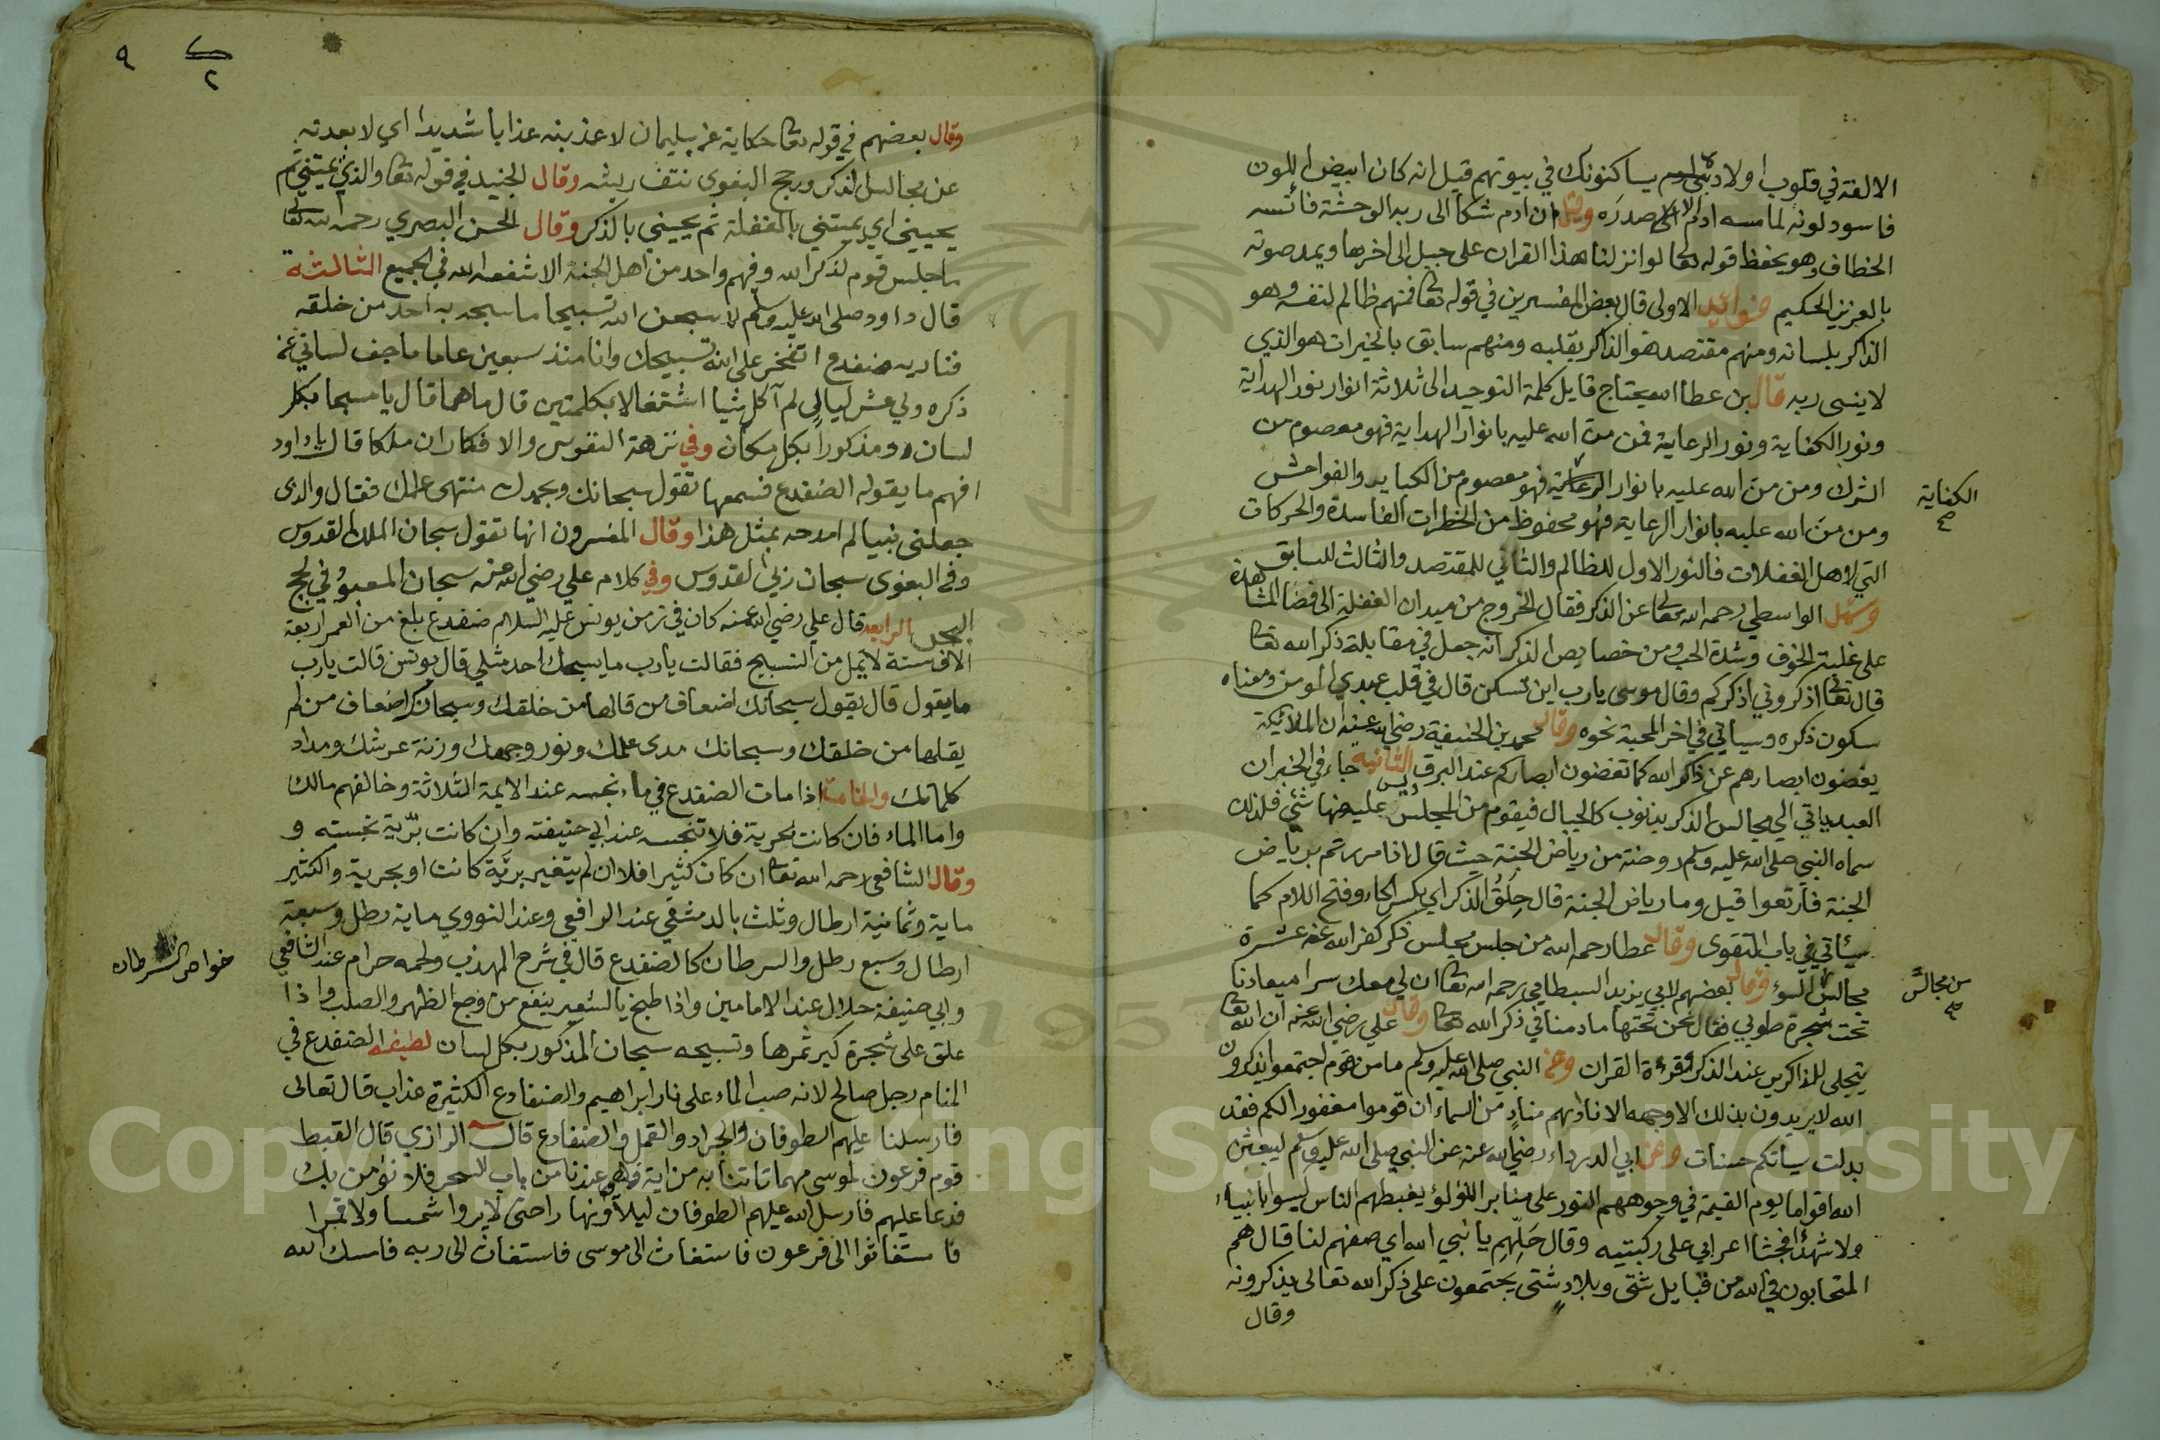 الالفة في قلوب اولاده لهم يساكنونك في بيوتهم قيل انه كان ابيض اللون
فاسود لونه لما مسه ادم الا صدره وقيل ان ادم شكا الى ربه الوحشة فآنسه
الخطاف وهو يحفظ قوله تعا لو انزلنا هذا القران على جبل الى اخرها ويمد صوته
بالعزيز الحكيم فوايد الاولى قال بعض المفسرين في قوله تعا فمنهم ظالم لنفسه وهو
الذاكر بلسانه ومنهم مقتصد هو الذاكر بقلبه ومنهم سابق بالخيرات هو الذي
لا ينسى ربه قال بن عطا الله يحتاج قايل كلمة التوحيد الى ثلاثة انوار نور الهداية
ونور الكفاية ونور الرعاية فمن منّ الله عليه بانوار الهداية فهو معصوم من
الشرك ومن منّ الله عليه بانوار الرعاية فهو معصوم من الكباير والفواحش
الكفاية صح
ومن منّ الله عليه بانوار الرعاية فهو محفوظ من الخطرات الفاسدة والحركات
التي لاهل الغفلات فالنور الاول للظالم والثاني للمقتصد والثالث للسابق
وسئل الواسطي رحمه الله تعا عن الذكر فقال الخروج من ميدان الغفلة الى فضا المشاهدة
على غلبة الخوف وشدة الحب ومن خصايص الذكر انه جعل في مقابلة ذكر الله تعا
قال تعا اذكروني اذكركم وقال موسى يارب اين تسكن قال في قلب عبدي المومن ومعناه
سكون ذكره وسياتي في اخر المحبة نحوه وقال محمد بن الحنيفية رضي الله عنه ان الملائكة
يغضون ابصارهم عن ذاكر الله كما تغضون ابصاركم عند البرق الثانية جاء في الخبر ان
العبد ياتي الى مجالس الذكر بذنوب كالجبال فيقوم من المجلس وليس عليه منها شئ فلذلك
سماه النبي صلى الله عليه وسلم روضة من رياض الجنة حيث قال اذا مررتم برياض
الجنة فارتعوا قيل وما رياض الجنة قال حِلَقُ الذكر اي بكسر الحاء وفتح اللام كما
سيأتي في باب التقوى وقال عطا رحمه الله من جلس مجلس ذكر كفر الله عنه عشرة
مجالس السوء وقال بعضهم لابي يزيد البسطامي رحمه الله تعا ان لي معك سرا ميعادنا
من مجالس صح
تحت شجرة طوبى فقال نحن تحتها ما دمنا في ذكر الله تعا وقال علي رضي الله عنه ان الله تعا
يتجلى للذاكرين عند الذكر وقرءة القران وعن النبي صلى الله عليه وسلم ما من قوم اجتمعوا يذكرون
الله لا يريدون بذلك الا وجهه الا ناداهم منادٍ من السماء ان قوموا مغفورا لكم فقد
بدلت سيأتكم حسنات وعن ابي الدرداء رضي الله عنه عن النبي صلى الله عليه وسلم ليبعثن
الله اقواما يوم القيمة في وجوههم النور على منابر اللؤلؤ يغبطهم الناس ليسوا بانبياء
ولا شهدأ فجثا اعرابي على ركبتيه وقال حَلِّهِم يا نبي الله اي صفهم لنا قال هم
المتحابون في الله من قبايل شتى وبلاد شتى يجتمعون على ذكر الله تعالى يذكرونه
وقال
٩
٢
وقال بعضهم في قوله تعا حكاية عن سليمان لاعذبنه عذابا شديدا اي لابعدنه
عن مجالس الذكر ورجح البغوي نتف ريشه وقال الجنيد في قوله تعا والذي يميتني ثم
يحييني اي يميتني بالغفلة ثم يحييني بالذكر وقال الحسن البصري رحمه الله تعا
ما جلس قوم لذكر الله وفهم واحد من اهل الجنة الا شفعه الله في الجميع الثالثة
قال داود صلى الله عليه وسلم لاسبحن الله تسبيحا ما سبحه به احد من خلقه
فنادته ضفدع اتفخر على الله بتسبيحك وانا منذ سبعين عاما ما جف لساني عن
ذكره ولي عشر ليالي لم آكل شيا اشتغالا بكلمتين قال ما هما قال يا مسبحا بكل
لسان ومذكوراً بكل مكان وفي نزهة النفوس والافكار ان ملكا قال ياداود
افهم ما يقوله الضفدع فسمعها تقول سبحانك وبحمدك منتهى علمك فقال والذي
جعلني نبيا لم امدحه بمثل هذا وقال المفسرون انها تقول سبحان الملك القدوس
وفي البغوي سبحان ربي القدوس وفي كلام علي رضي الله عنه سبحان المعبود في لجج
البحار الرابعه قال علي رضي الله عنه كان في زمن يونس عليه السلام ضفدع بلغ من العمر اربعة
الاف سنة لا يمل من التسبيح فقالت يارب ما يسبحك احد مثلي قال يونس قالت يارب
ما يقول قال يقول سبحانك اضعاف من قالها من خلقك وسبحانك اضعاف من لم
يقلها من خلقك وسبحانك مدى علمك ونور وجهك وزنة عرشك ومداد
كلماتك والخامسة اذا مات الضفدع في ماء نجسه عند الايمة الثلاثة وخالفهم مالك
واما الماء فان كانت بحرية فلا تنجسه عند ابي حنيفته وان كانت برّية نجسته و
وقال الشافعي رحمه الله تعا ان كان كثيرا فلا ان لم يتغير بريّة كانت او بحرية والكثير
ماية وثمانية ارطال وثلث بالدمشقي عند الرافعي وعند النووي ماية رطل وسبعة
ارطال وسبع رطل والسرطان كالضفدع قال في شرح المهذب ولحمه حرام عند الشافعي
خواص السرطان
وابي حنيفة حلال عند الامامين واذا طبخ بالشعير ينفع من وجع الظهر والصلب واذا
علق على شجرة كبر ثمرها وتسبيحه سبحان المذكور بكل لسان لطيفه الضفدع في
المنام رجل صالح لانه صب الماء على نار ابراهيم والضفادع الكثيرة عذاب قال تعالى
فارسلنا عليهم الطوفان والجراد والقمل والضفادع قال الرازي قال القبط
قوم فرعون لموسى مهما تاتنا به من اية فهي عندنا من باب السحر فلا نؤمن بك
فدعا عليهم فارسل الله عليهم الطوفان ليلا ونهارا حتى لا يروا شمسا ولا قمرا
فاستغاثوا الى فرعون فاستغاث الى موسى فاستغاث الى ربه فامسك الله
Copyright © King Saud University
1957